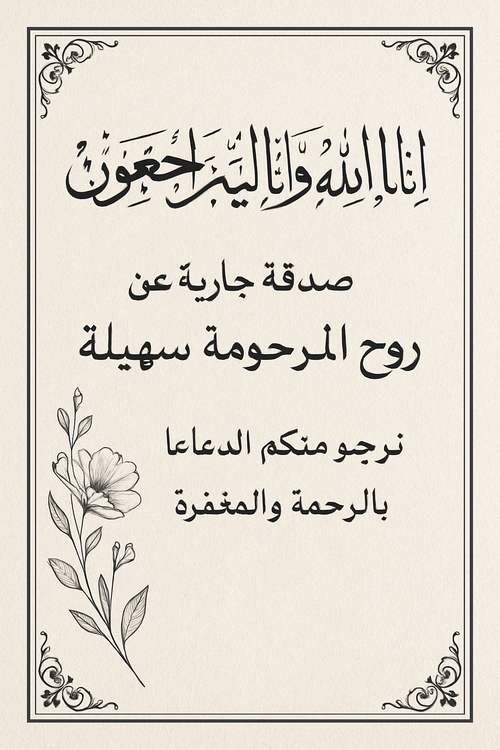 انا الله وانا اليه راجعون
صدقة جارية عن
روح المرحومة سهيلة
نرجو منكم الدعاعا
بالرحمة والمغفرة